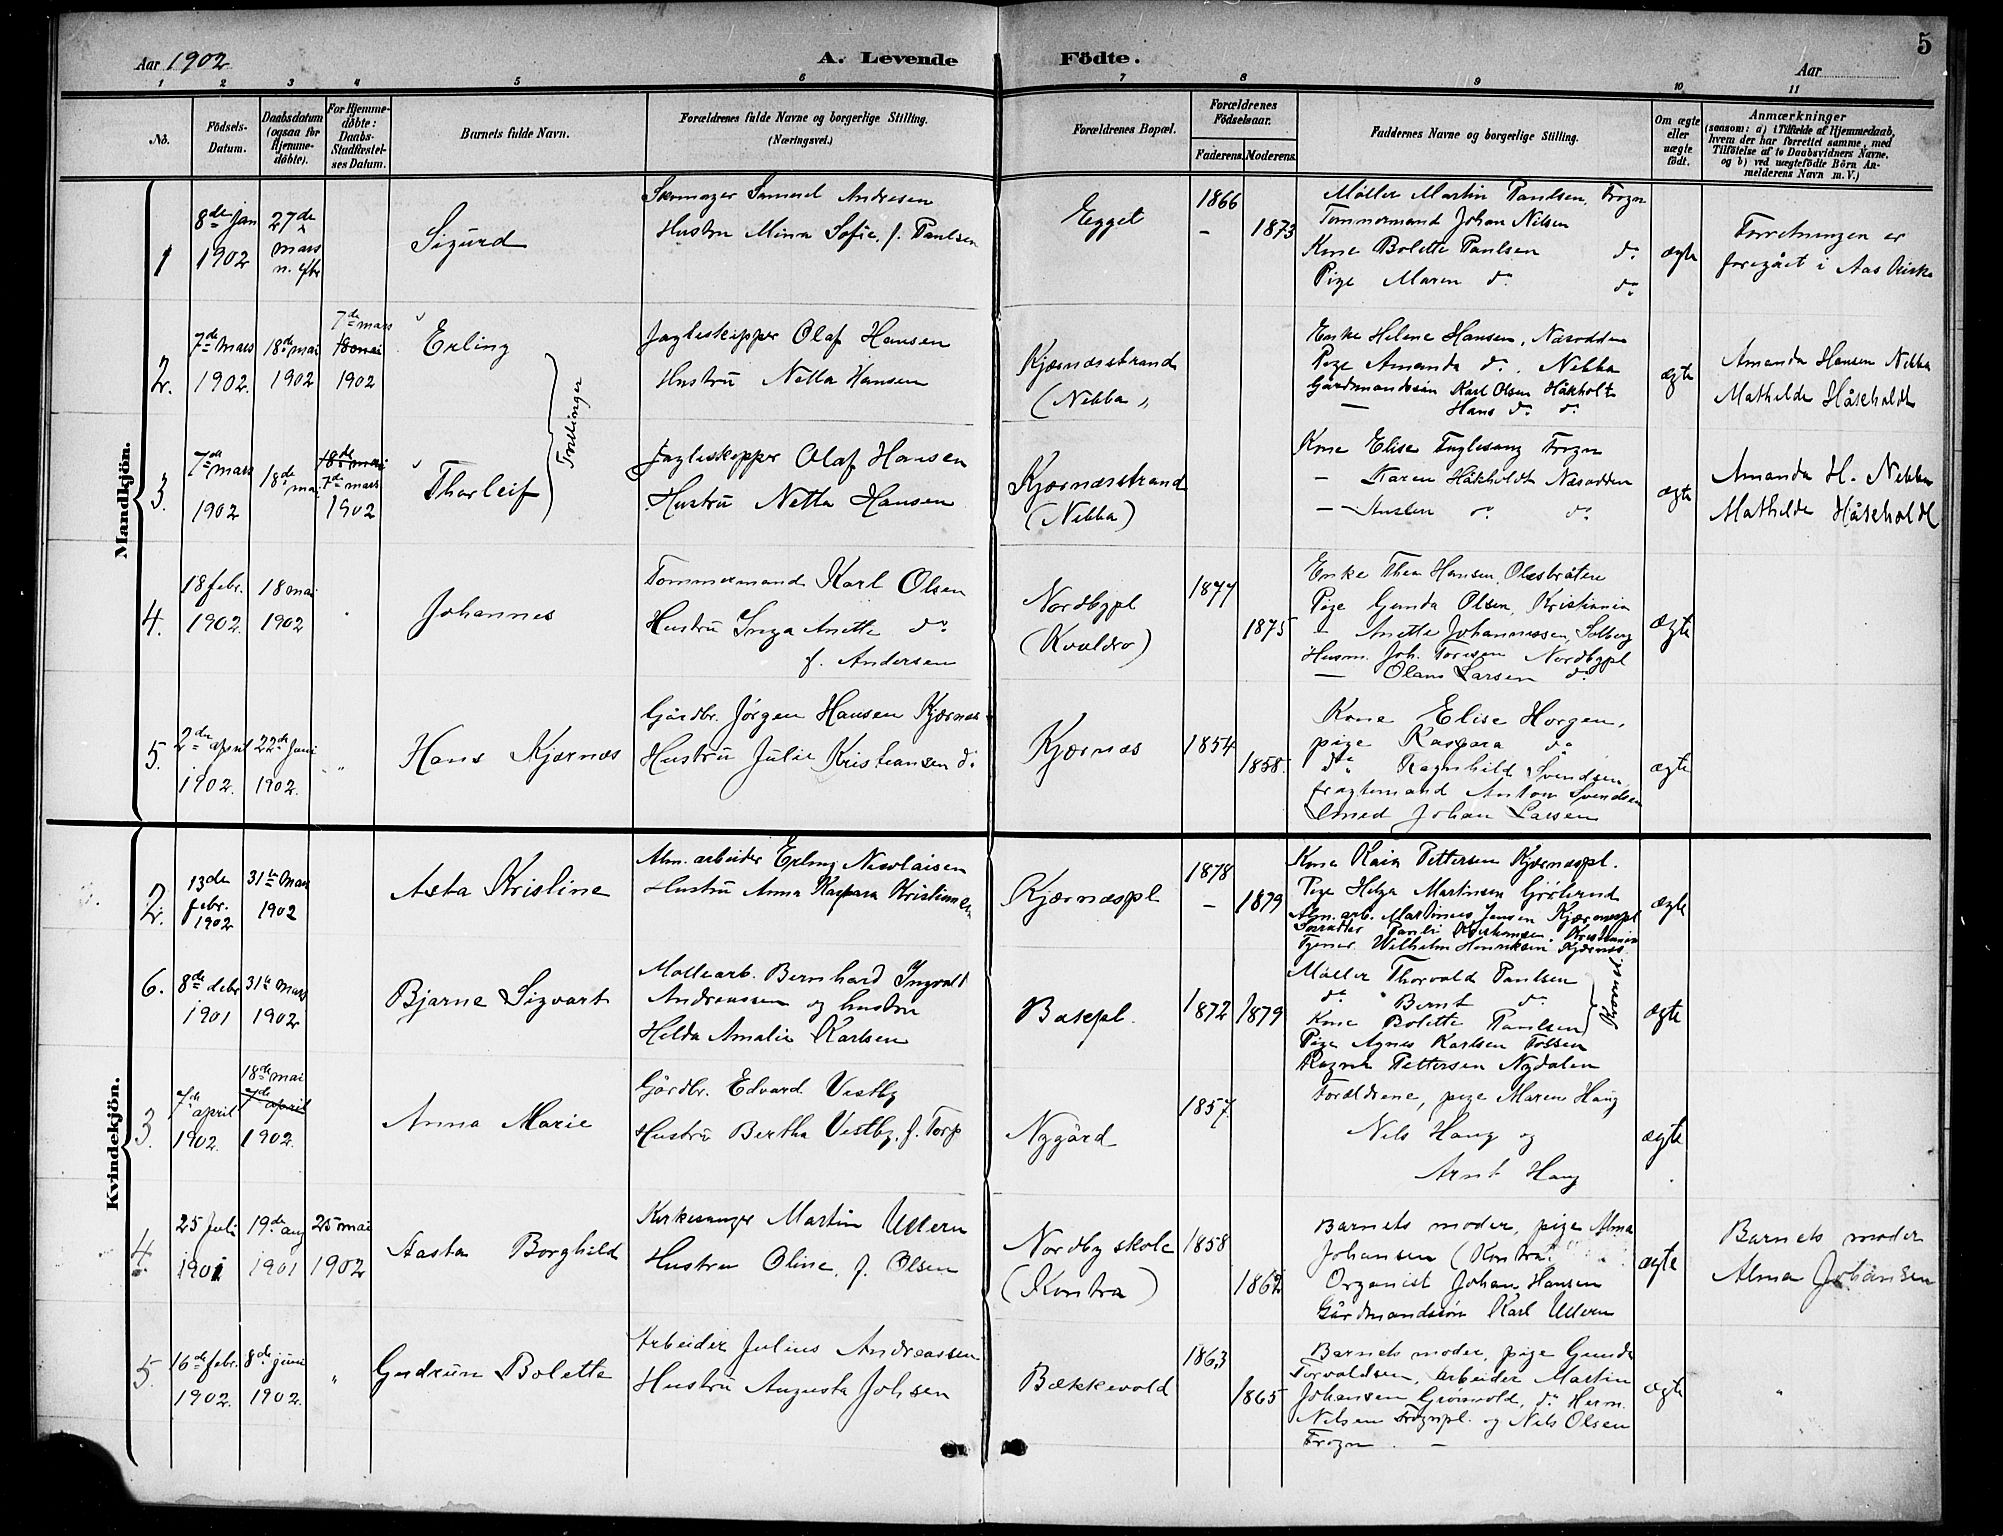 5
Aar 1902
A. Levende Födte.
Aar
1 2 3 4 5 6 7 8 9 10 11
No.
Födsels-Datum.
Daabsdatum (ogsaa for Hjemme-döbte).
For Hjemme-döbte: Daabs-Stadfæstel-ses Datum.
Barnets fulde Navn.
Forældrenes fulde Navne og borgerlige Stilling.
(Næringsvei.)
Forældrenes Bopæl.
Forældrenes Födselsaar.
Faderens. Moderens.
Faddernes Navne og borgerlige Stilling.
Om ægte eller uægte födt.
Anmærkninger
(saasom: a) i Tilfælde af Hjemmedaab,
hvem der har forrettet samme, med
Tilföielse af to Daabsvidners Navne.
og b) ved uægtefödte Börn An-
melderens Navn m. V.)
Mandkjön.
1
8de Jan 1902
27de mars
Sigurd
Skomager Samuel Andresen
Hustru Mina Sofie, f. Paulsen
Egget
1866
- 1873
Møller Martin Paulsen, Frogn
Tømmermand Johan Nilsen
Kone Bolette Paulsen do
Pige Maren do do
ægte
Forretningen er
foregået i Aas Kirke
2.
7de mars 1902.
18de mai 1902
7de mars
18 mai
1902
Erling
Tvillinger
Jagteskipper Olaf Hansen
Hustru Netta Hansen
Kjærnæsstrand
(Nebba)
Enke Helene Hansen, Næsodden
Pige Amanda do. Nebba
Gårdmandssøn Karl Olsen Håkholt
— Hans do do
ægte
Amanda Hansen Nebba
Mathilde Håkholdt
3.
7de mars 1902
18de mai
18de mai
7de mars
1902
Thorleif
Jagteskipper Olaf Hansen
Hustru Netta Hansen
Kjærnæsstrand
(Nebba)
Kone Elise Fuglesang Frogn
- Karen Håkholdt Næsodden
do do
ægte
Amanda H. Nebba
Mathilde Håkholdt
4.
18 febr. 1902.
18 mai 1902
Johannes
Tømmermand Karl Olsen
Hustru Inga Anette do
f. Andersen
Nordbypl
(Kvaldro)
1877
1875
Enke Thea Hansen, Olasbråten
Pige Gunda Olsen, Kristiania
- Anette Johannessen, Solberg
Husm. Joh. Toresen Nordbypl
— Olaus Larsen do
ægte
5.
2de april 1902.
22de Juni 1902.
Hans Kjærnæs
Gårdbr. Jørgen Hansen Kjærnæs
Hustru Julie Kristiansen do
Kjærnæs
1854
1858.
Kone Elise Horgen,
pige Kaspara do
do Ragnhild Svendsen,
fragtemand Anton Svendsen
Smed Johan Larsen
ægte
Kvindekjön.
2.
13de febr. 1902
31te Mars 1902
Asta Kristine
Alm. arbeider Erling Nicolaisen
Hustru Anna Kaspara Kristiansen
Kjærnæspl
1878
- 1879
Kone Kaia Pettersen Kjærnæspl.
Pige Helga Martinsen Gjøterud
Alm. arb. Martinus Jensen Kjærnæspl
Kristiansen, Kristiania
Tjener Wilhelm Henriksen Kjærnæs
ægte
6.
8de debr 1901
31te mars 1902
Bjarne Sigvart
Møllearb. Bernhard Ingvald
Andreassen og hustru
Hilda Amalie Karlsen
Baskpl.
1872 1879
Møller Thorvald Paulsen
do Bernt do
Kone Bolette Paulsen
Pige Agnes Karlsen Fossen
Ragna Pettersen Nydalen
ægte
3.
7de april 1902.
18de mai
7de april
1902.
Anna Marie
Gårdbr. Edvard Vestby
Hustru Bertha Vestby, f. Torp
Nygård
1857
Forældrene, pige Maren Haug
Nils Haug og
Arnt Haug
ægte
4.
25 Juli 1901
19de aug 1901
25 mai 1902
Aasta Borghild
Kirkesanger Martin Ullern
Hustru Oline, f. Olsen
Nordby skole
(Kontra)
1858
1862
Barnets moder, pige Alma
Johansen (Kontra)
Organist Johan Hansen
Gårdmandssøn Karl Ullern
ægte
Barnets moder
Alma Johansen
5.
16de febr. 1902.
8de juni 1902.
Gudrun Bolette
Arbeider Julius Andreassen
Hustru Augusta Johsen
Bækkevold
1863
1865
Barnets moder, pige Gunda
Torvaldsen, arbeider Martin
Johansen Grønvold, do Herm.
Nilsen Frognpl. og Nils Olsen
Frogn. —
ægte